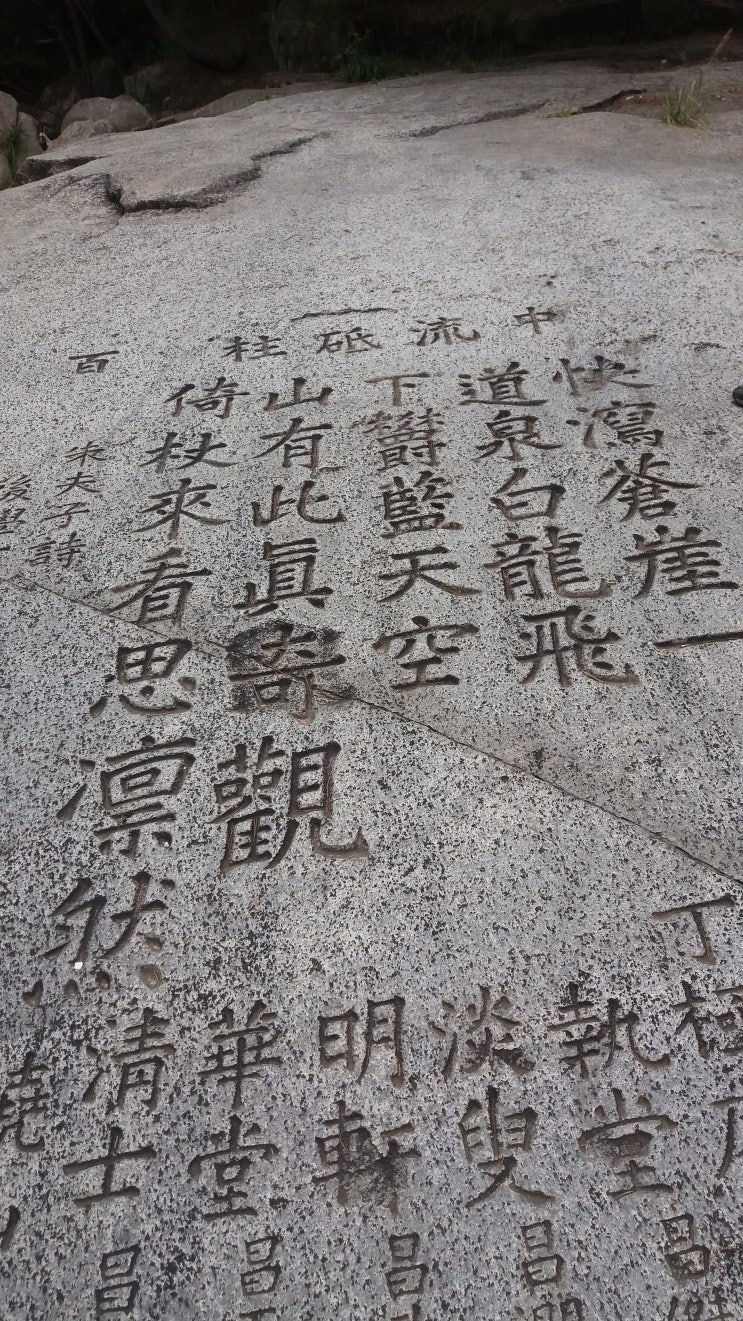 中流砥柱
百
快瀉蒼崖一
道泉白龍飛
下欝藍天空
山有此眞奇觀
倚杖來看思凛然
朱夫子詩
後學
丁極
執堂昌傑
淡叟昌潤
明軒昌
華堂昌
清士昌
曉